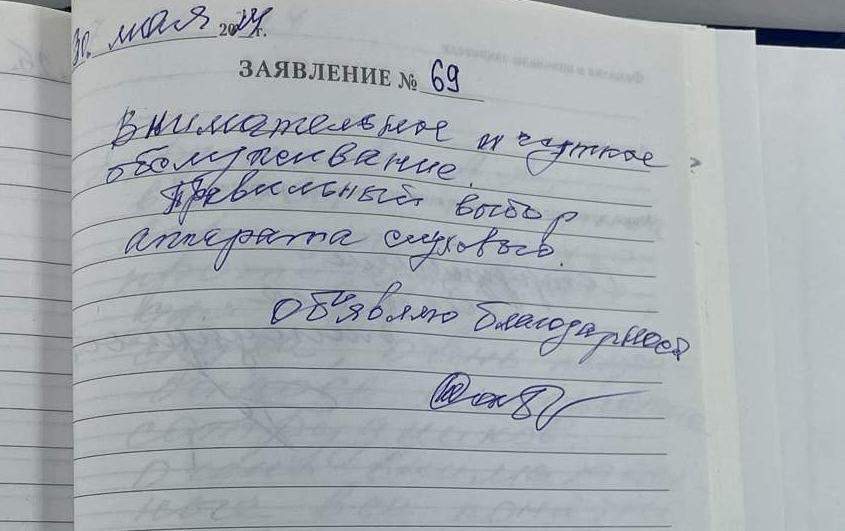 30 мая 2024 г.
ЗАЯВЛЕНИЕ № 69
Внимательное и чуткое
обслуживание.
Правильный выбор
аппарата слухового.
Объявляю благодарность